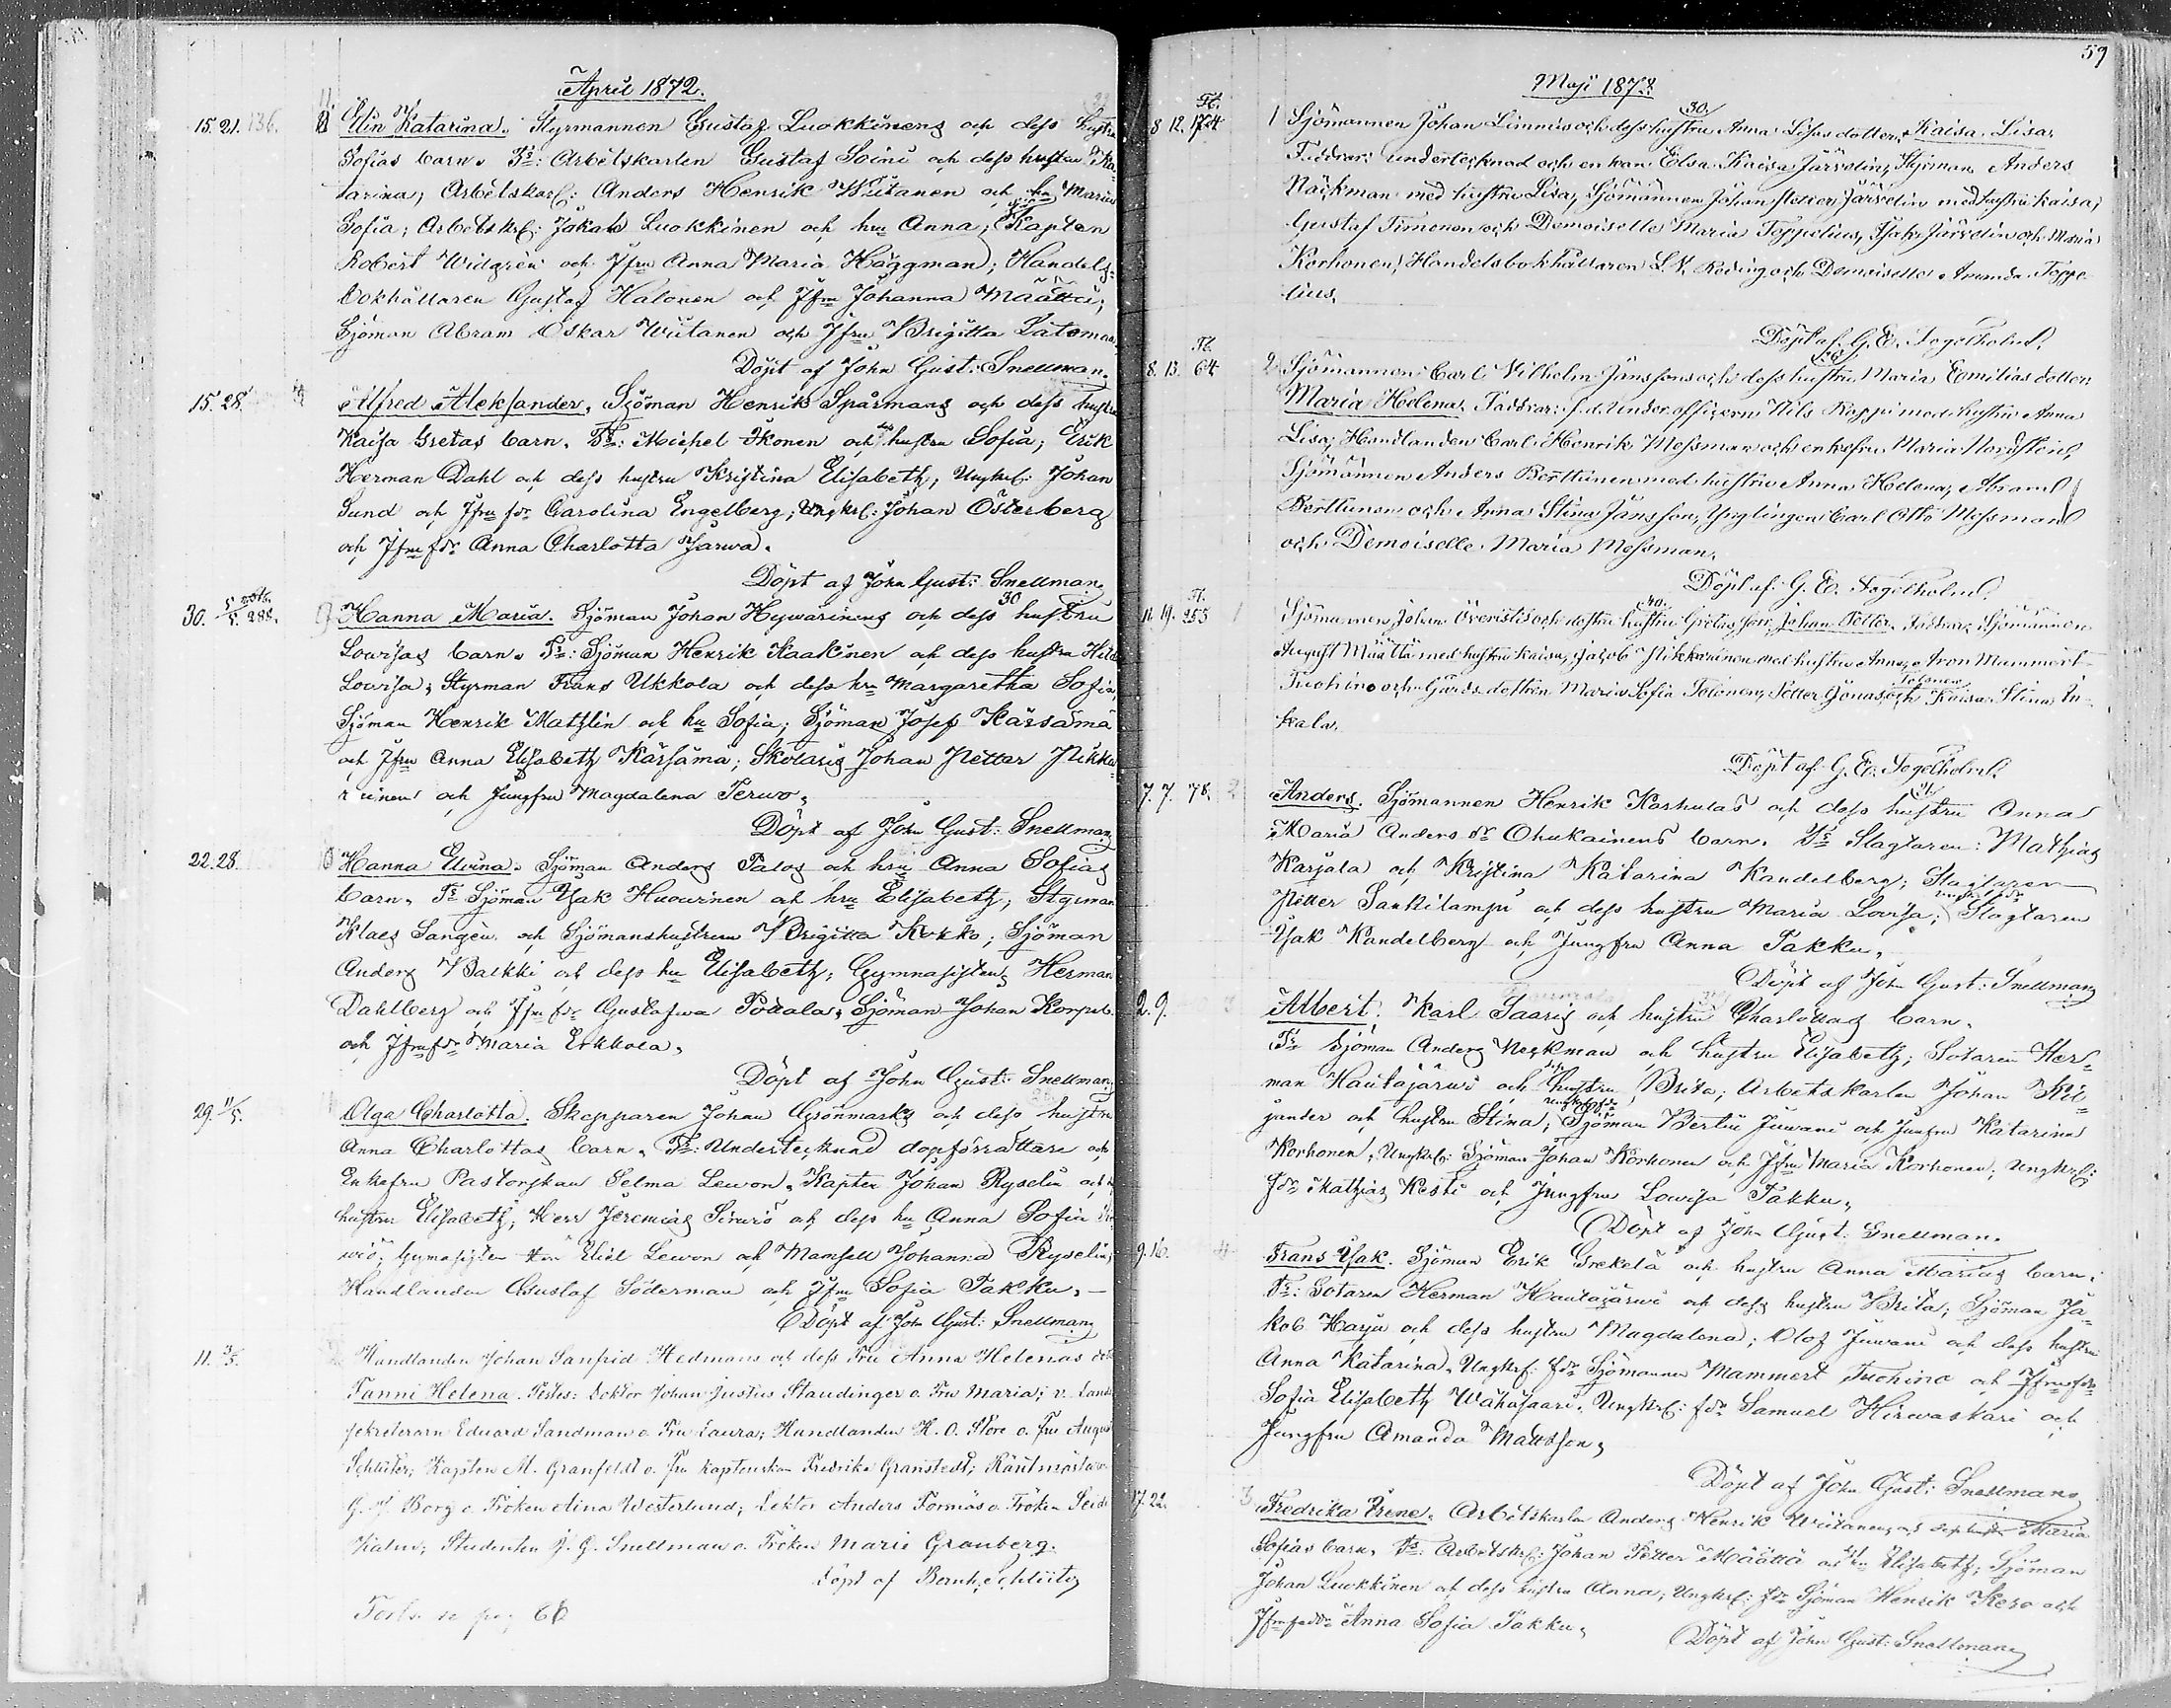 April 1872.
15. 21. 136. Elin Katarina. Styrmannen Gustaf Luokkinens och dess hustru
Sofias barn. Fs: Arbetskarlen Gustaf Soini och dess hustru Ka-
tarina; Arbetskarl: Anders Henrik Wiitanen och hu Maria
Sofia; Arbetskrl: Jakob Luokkinen och hru Anna; Kapten
Robert Widgrén och Jfru Anna Maria Häggman; Handels-
bokhållaren Gustaf Halonen och Jfru Johanna Määttä;
Sjöman Abram Oskar Wiitanen och Jfru Brigitta Latomaa.
Döpt af John Gust: Snellman.
15. 28. Alfred Aleksander. Sjöman Henrik Sparmans och dess hustru
Kaisa Gretas barn. Fs: Michel Ikonen och hustru Sofia; Erik
Herman Dahl och dess hustru Kristina Elisabeth; Ungkrl: Johan
Sund och Jfru fdr Carolina Engelberg; Ungkrl: Johan Österberg
och Jfru fdr Anna Charlotta Jarwa.
Döpt af John Gust: Snellman.
30. 5/5. 288. Hanna Maria. Sjöman Johan Hywärinens och dess 30 hustru
Lowisas barn. Fs: Sjöman Henrik Kaakinen och dess hustru Hilda
Lowisa; Styrman Frans Ukkola och dess hru Margaretha Sofia,
Sjöman Henrik Mathlin och hu Sofia; Sjöman Josef Kärsämä
och Jfru Anna Elisabeth Kärsämä; Skolaris Johan Petter Pikka-
rainen och Jungfru Magdalena Perwo.
Döpt af John Gust: Snellman
22. 28. Hanna Elvina. Sjöman Anders Palos och hru Anna Sofias
barn. Fs Sjöman Isak Huowinen och hru Elisabeth; Styrman
Klaes Sangén och Sjömanshustrun Brigitta Kokko; Sjöman
Anders Backki och dess hu Elisabeth; Gymnasisten Herman
Dahlberg och Jfru fdr Gustafwa Pokala; Sjöman Johan Korpela
och Jfru fdr Maria Erkkola.
Döpt af John Gust: Snellman
29. 11/5. Olga Charlotta. Skepparen Johan Grönmarks och dess hustru
Anna Charlottas barn. Fs: Undertecknad dopförrättare och
Enkefru Pastorskan Selma Lewon. Kapten Johan Ryselin och
hustru Elisabeth; Herr Jeremias Simiö och dess hu Anna Sofia
Gymnasisten Eliel Lewon och Mamsell Johanna Ryselin;
Handlanden Gustaf Söderman och Jfru Sofia Takku.
Döpt af John Gust: Snellman
11. 3/5. Handlanden Johan Sanfrid Hedmans och dess Fru Anna Helenas
Fanni Helena. Testes: Doktor Johan Justus Staudinger o. Fru Maria; v. Lands
sekreteraren Eduard Sandman o. Fru Laura; Handlanden H. O. Store o. Fru Augus
Schlüter; Kapten M. Granfeldt o. Fru Kaptenskan Fredrika Granstedt; Räntmästaren
Borg o. Fröken Alina Westerlund; Lektor Anders Törnäs o. Fröken
Studenten J. G. Snellman o. Fröken Maria Granberg.
Döpt af Bernh. Schlüter
59
Maji 1872
8. 12. 1 Sjömannen Johan Linnis och dess hustru 30. Anna Lisas dotter, Kaisa Lisa,
Faddrar: undertecknad och enkan Elsa Kaisa Järvelin, Styrman Anders
Näckman med hustru Lisa, Sjömannen Johan Petter Järvelin med hustru Kaisa,
Gustaf Timonen och Demoiselle Maria Toppelius, Isak Järvelin och Maria
Korhonen, Handelsbokhållaren L. V. Reding och Demoiselle Amanda Toppe-
lius.
Döpt af G. E. Fogelholm.
8. 13. 64 2 Sjömannen Carl Vilhelm Jänssons och dess hustru Maria Emilias dotter
Maria Helena. Faddrar: f. d. Underofficeren Nils Rappi med hustru Anna
Lisa, Handlanden Carl Henrik Messman och enkefru Maria Nordstein,
Sjömannen Anders Berttunen med hustru Anna Helena, Abram
Berttunen och Anna Stina Jänsson, Ynglingen Carl Otto Messman
och Demoiselle Maria Messman.
Döpt af G. E. Fogelholm.
11. 19. 255 Sjömannen Johan Överistis och 40. hustru Gretas son, Johan Petter. Faddrar: Sjömannen
August Määttä med hustru Kaisa, Jacob Pikkarainen med hustru Anna, Aron Mammert
Tuohino och Gårds dottren Maria Sofia Tolonen, Petter Jonas Tolonen och Kaisa Stina In-
kala.
Döpt af G. E. Fogelholm.
7. 7. 78. Anders. Sjömannen Henrik Karhulas och dess hustru Anna
Maria Anders dr Ohukainens barn. Fs Slagtaren: Mathias
Karjala och Kristina Katarina Kandelberg; Slagtaren
Petter Sankilampi och dess hustru Maria Lovisa; Slagtaren
Isak Kandelberg och Jungfru Anna Takku.
Döpt af John Gust: Snellman
2. 9. Albert. Karl Saaris och hustru Charlottas barn.
Fs Sjöman Anders Neckman och hustru Elisabeth; Sotaren Her-
man Hautajärwi och hustru Brita; Arbetskarlen Johan Kil-
jander och hustru Stina; Sjöman Bertil Juwani och Jungfru Katarina
Korhonen; Ungkrl: Sjöman Johan Korhonen och Jfru Maria Korhonen; Ungkrl:
fdr Mathias Kesti och Jungfru Lowisa Takku.
Döpt af John Gust: Snellman.
9. 16. Frans Isak. Sjöman Erik Grekelä och hustru Anna Marias barn.
Fs: Sotaren Herman Hautajärwi och dess hustru Brita; Sjöman Ja-
kob Harju och dess hustru Magdalena; Olof Juwani och dess hustru
Anna Katarina. Ungkrl: fdr Sjömannen Mammert Tuohino och Jfru fdr
Sofia Elisabeth Wähäsaari. Ungkrl: fdr Samuel Hirwaskari och
Jungfru Amanda Mattsson.
Döpt af John Gust: Snellman
17. 22. Fredrika Irene. Arbetskarlen Anders Henrik Wiitanens och dess hustru Maria
Sofias barn. Fs: Arbetskrl: Johan Petter Määttä och hu Elisabeth; Sjöman
Johan Luokkinen och dess hustru Anna; Ungkrl: fdr Sjöman Henrik Kero och
Jfru fdr Anna Sofia Takku.
Döpt af John Gust: Snellman